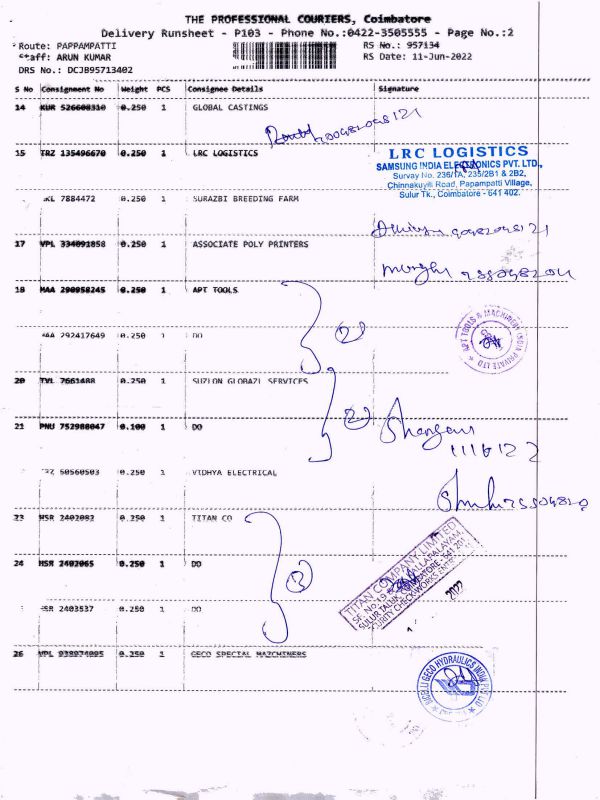 THE PROFESSIONAL COURIERS, Coimbatore
Delivery Runsheet - P103 - Phone No.:0422-3505555 - Page No.:2
Route: PAPPAMPATTI
RS No.: 957134
Staff: ARUN KUMAR
RS Date: 11-Jun-2022
DRS No.: DCJB95713402
S No Consignment No Weight PCS Consignee Details Signature
14 KUR 526608310 0.250 1 GLOBAL CASTINGS
15 TRZ 135496670 0.250 1 LRC LOGISTICS
LRC LOGISTICS
SAMSUNG INDIA ELECTRONICS PVT. LTD.,
Survay No. 236/1A, 235/2B1 & 2B2,
Chinnakuyili Road, Papampatti Village,
Sulur Tk., Coimbatore - 641 402.
7884472 0.250 1 SURAZBI BREEDING FARM
17 VPL 334091858 0.250 1 ASSOCIATE POLY PRINTERS
18 MAA 290958245 0.250 1 APT TOOLS
2
APT TOOLS & MACHINERY INDIA PRIVATE LTD
MAA 292417649 0.250 1 DO
20 TVL 7661488 0.250 1 SUZLON GLOBAZL SERVICES
2
21 PNU 752988047 0.100 1 DO
50560503 0.250 1 VIDHYA ELECTRICAL
23 HSR 2402082 0.250 1 TITAN CO
24 HSR 2402065 0.250 1 DO
3
TITAN COMPANY LIMITED
HSR 2403537 0.250 1 DO
2022
26 VPL 0.250 1 GECO SPECIAL MAZCHINERS
GECO HYDRAULICS INDIA PVT LTD